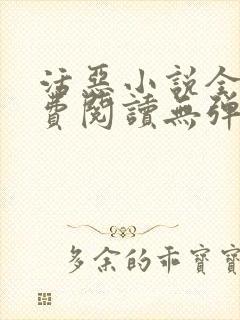 活惡小說全
費閱讀無彈
多余的乖寶寶